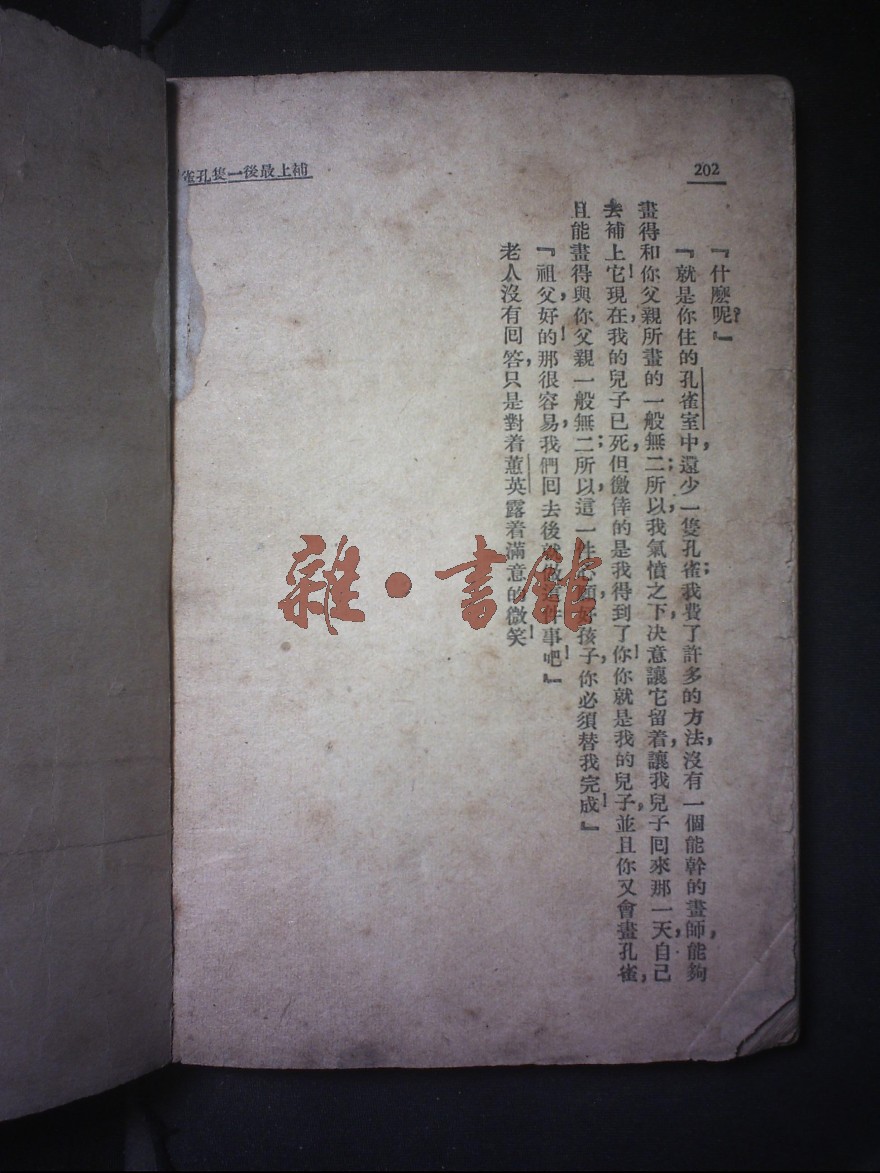 202
補上最後一隻孔雀
『什麽呢?』
『就是你住的孔雀室中,還少一隻孔雀;我費了許多的方法,沒有一個能幹的畫師,能夠
畫得和你父親所畫的一般無二;所以,我氣憤之下,決意讓它留着,讓我兒子回來那一天,自己
去補上它!現在,我的兒子已死,但徼倖的是,我得到了你!你就是我的兒子,並且你又會畫孔雀,
且能畫得與你父親一般無二;所以,這一件心願,好孩子,你必須替我完成!』
『祖父,好的!那很容易,我們回去後就做這件事吧!』
老人沒有回答,只是對着薰英露着滿意的微笑!
雜·書館